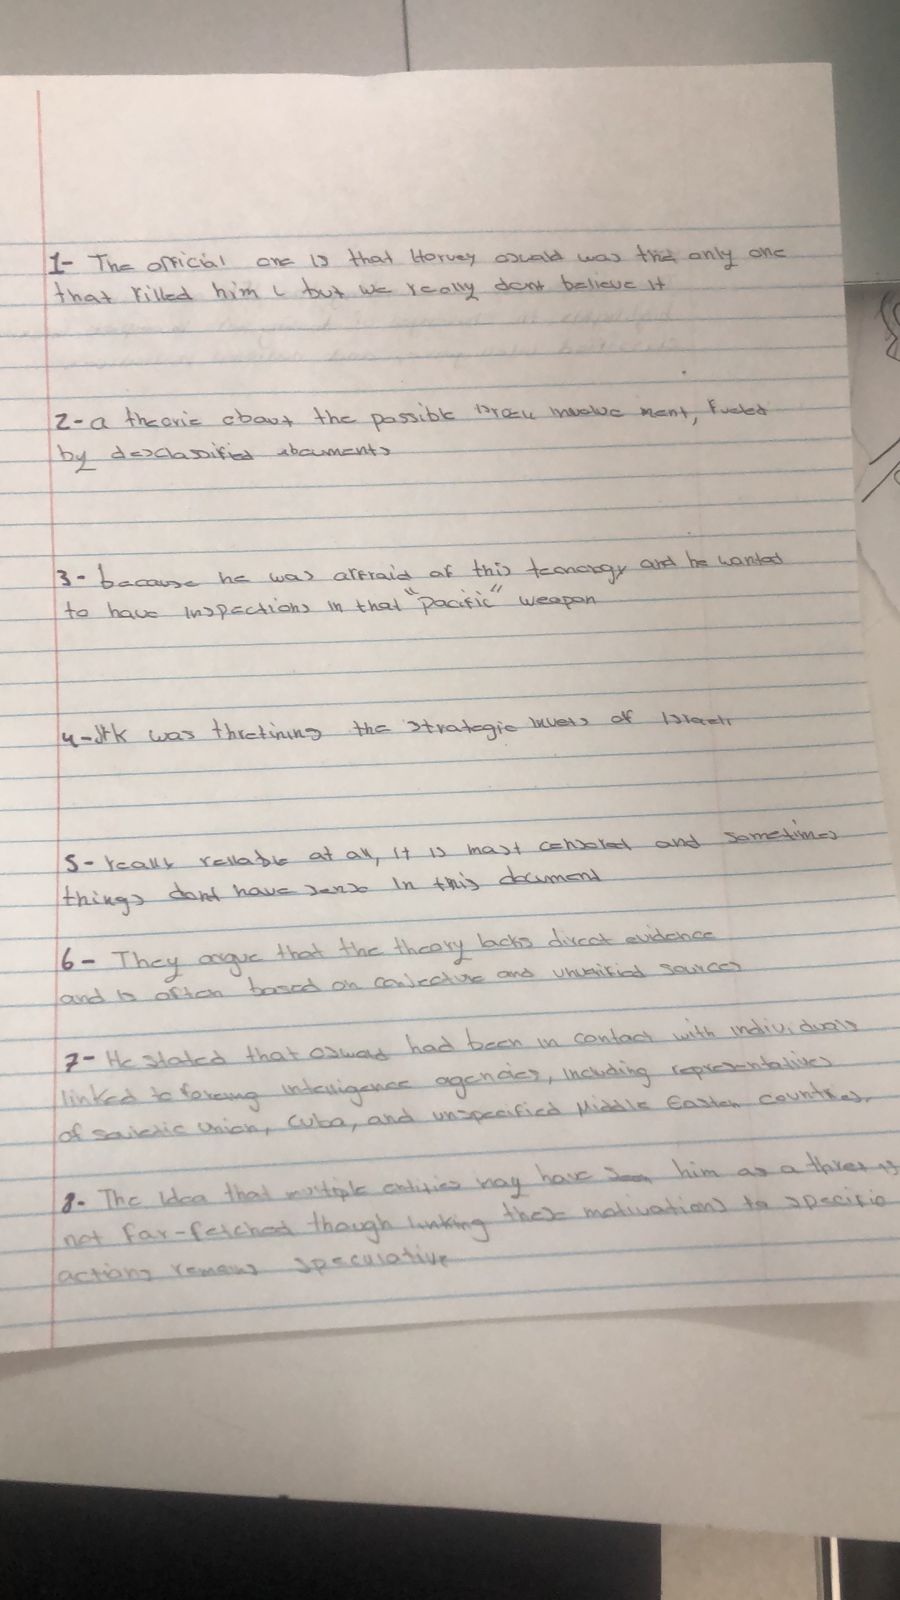 1- The official one is that Harvey oswald was the only one
that killed him but we really dont believe it
2- a theorie about the possible Israeli involvement, fueled
by desclassified documents
3- because he was affraid of this tecnology and he wanted
to have inspections in that "pacific" weapon
4- JFK was thretining the strategic of Israeli
5- really reliable at all, it is most censored and sometimes
things dont have sense in this document
6- They argue that the theory lacks direct evidence
and is often based on conjecture and unverified sources
7- He stated that oswald had been in contact with individuals
linked to foreing intelligence agencies, including representatives
of union, Cuba, and unspecified Middle Eastern countries.
8- The idea that multiple entities may have seen him as a threat is
not far-fetched though linking these motivations to specific
actions remains speculative